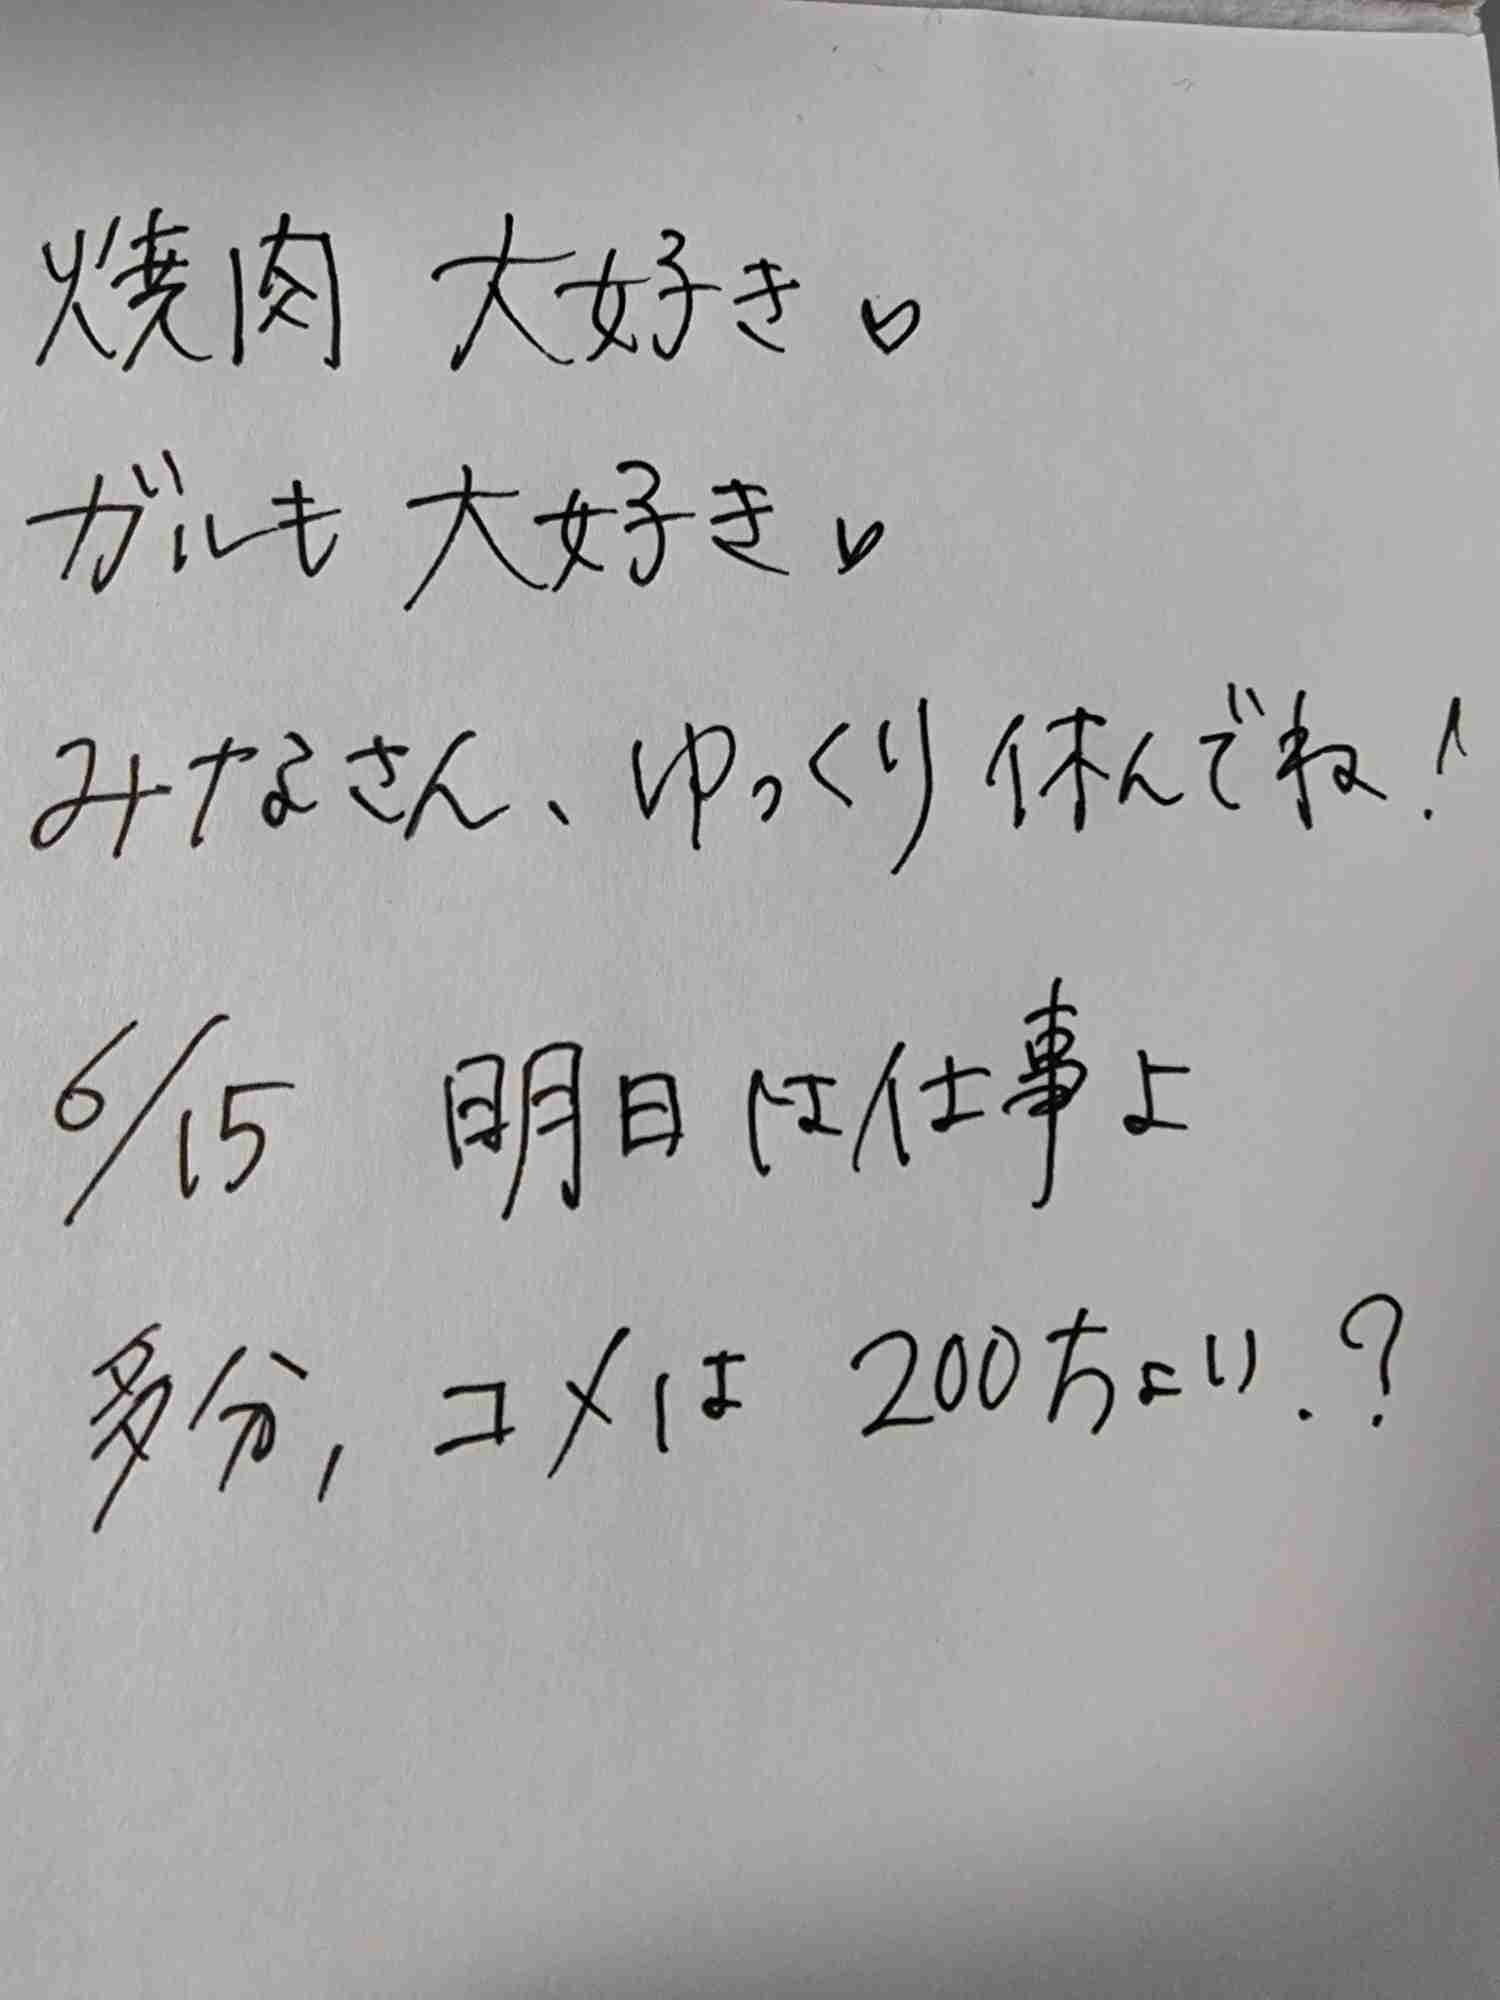 焼肉 大好き♡
ガルも 大好き♡
みなさん、ゆっくり休んでね!
6/15 明日は仕事よ
多分, コメは 200ちょい.?